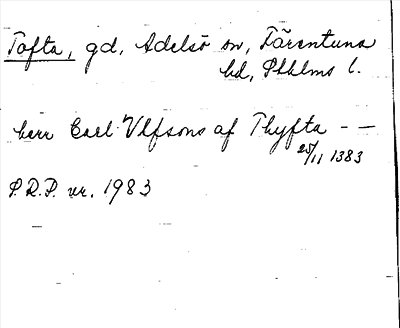 Tofta, gd, Adelsö sn, Färentuna
hd, Sthlms l.
herr Carl Ulfsons af Thyfta - -
25/11 1383
S.R.P. nr. 1983